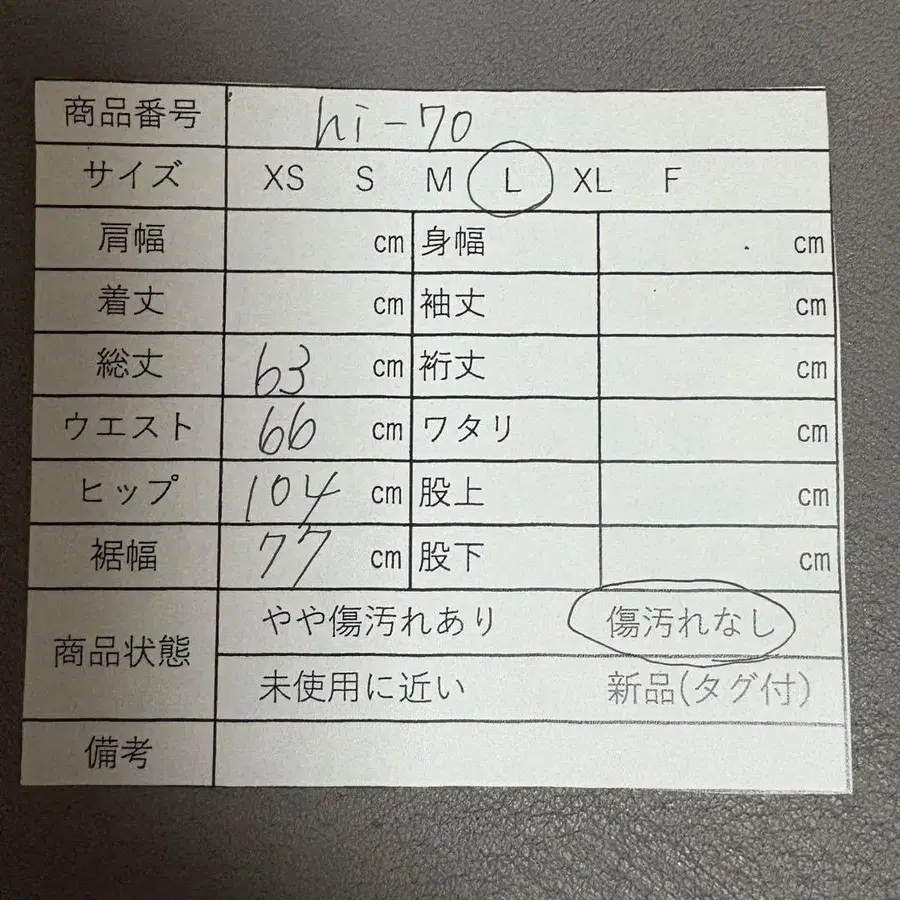 商品番号 hi-70
サイズ XS S M L XL F
肩幅 cm 身幅 cm
着丈 cm 袖丈 cm
総丈 63 cm 裄丈 cm
ウエスト 66 cm ワタリ cm
ヒップ 104 cm 股上 cm
裾幅 77 cm 股下 cm
商品状態 やや傷汚れあり 傷汚れなし
未使用に近い 新品(タグ付)
備考